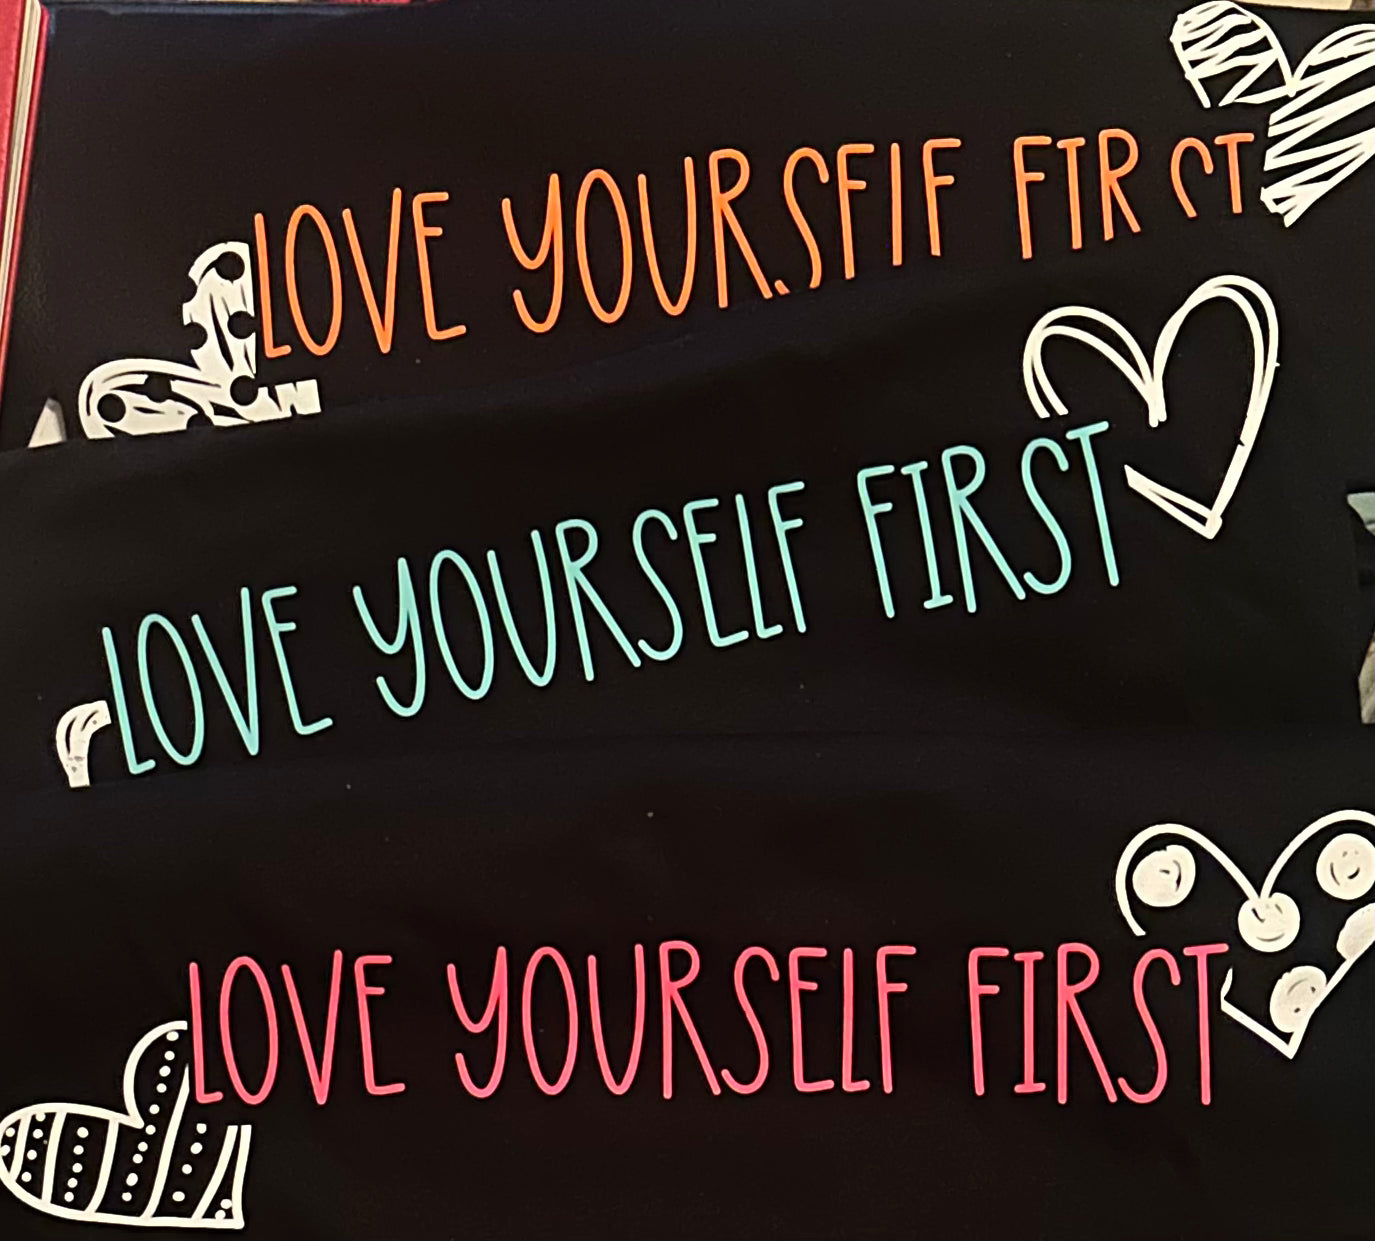 LOVE YOURSELF FIRST
LOVE YOURSELF FIRST
LOVE YOURSELF FIRST